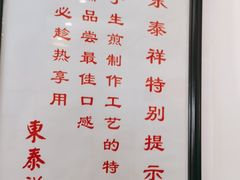 东泰祥特别提示
于生煎制作工艺的特
品尝最佳口感
必趁热享用
東泰祥